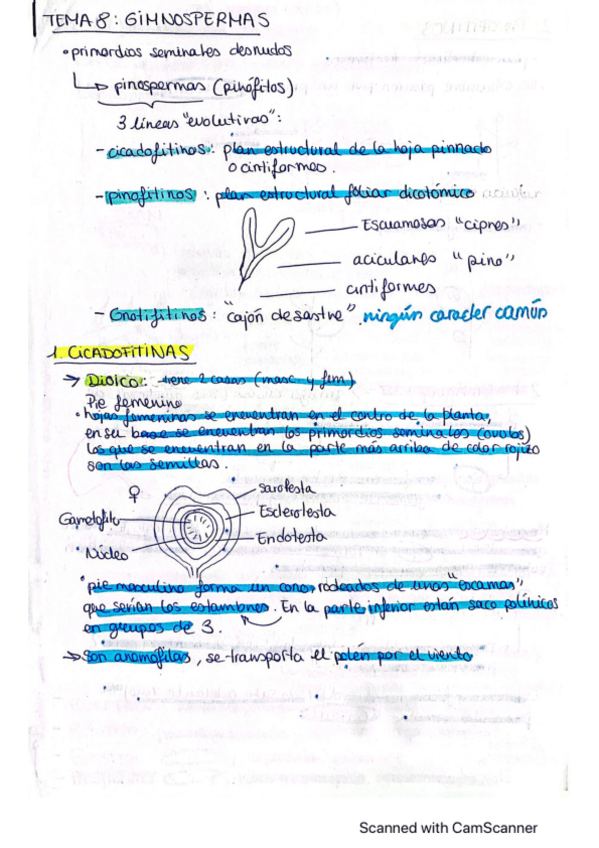 TEMA 8: GIMNOSPERMAS
• primordios seminales desnudos
pinospermas (pinófitos)
3 líneas "evolutivas":
- cicadofitinos: plan estructural de la hoja pinnado
o cintiformes.
- pinofitinos: plan estructural foliar dicotómico
Escuamosas "cipres"
aciculares "pino"
cintiformes
- Gnetifitinos: "cajón desastre", ningún caracter común
1. CICADOFITINAS
→ Dioico: tiene 2 casas (masc y fem)
Pie femenino
• hojas femeninas se encuentran en el centro de la planta,
en su base se encuentran los primordios seminales (ovulos)
los que se encuentran en la parte más arriba de color rojizo
son las semillas.
♀
Sarotesta
Gametofito
Esclerotesta
Endotesta
Núcleo
• pie masculino forma un cono, rodeados de unas "escamas"
que serían los estambres. En la parte inferior están saco polínicos
en grupos de 3.
→ Son anemofilas, se transporta el polén por el viento
Scanned with CamScanner